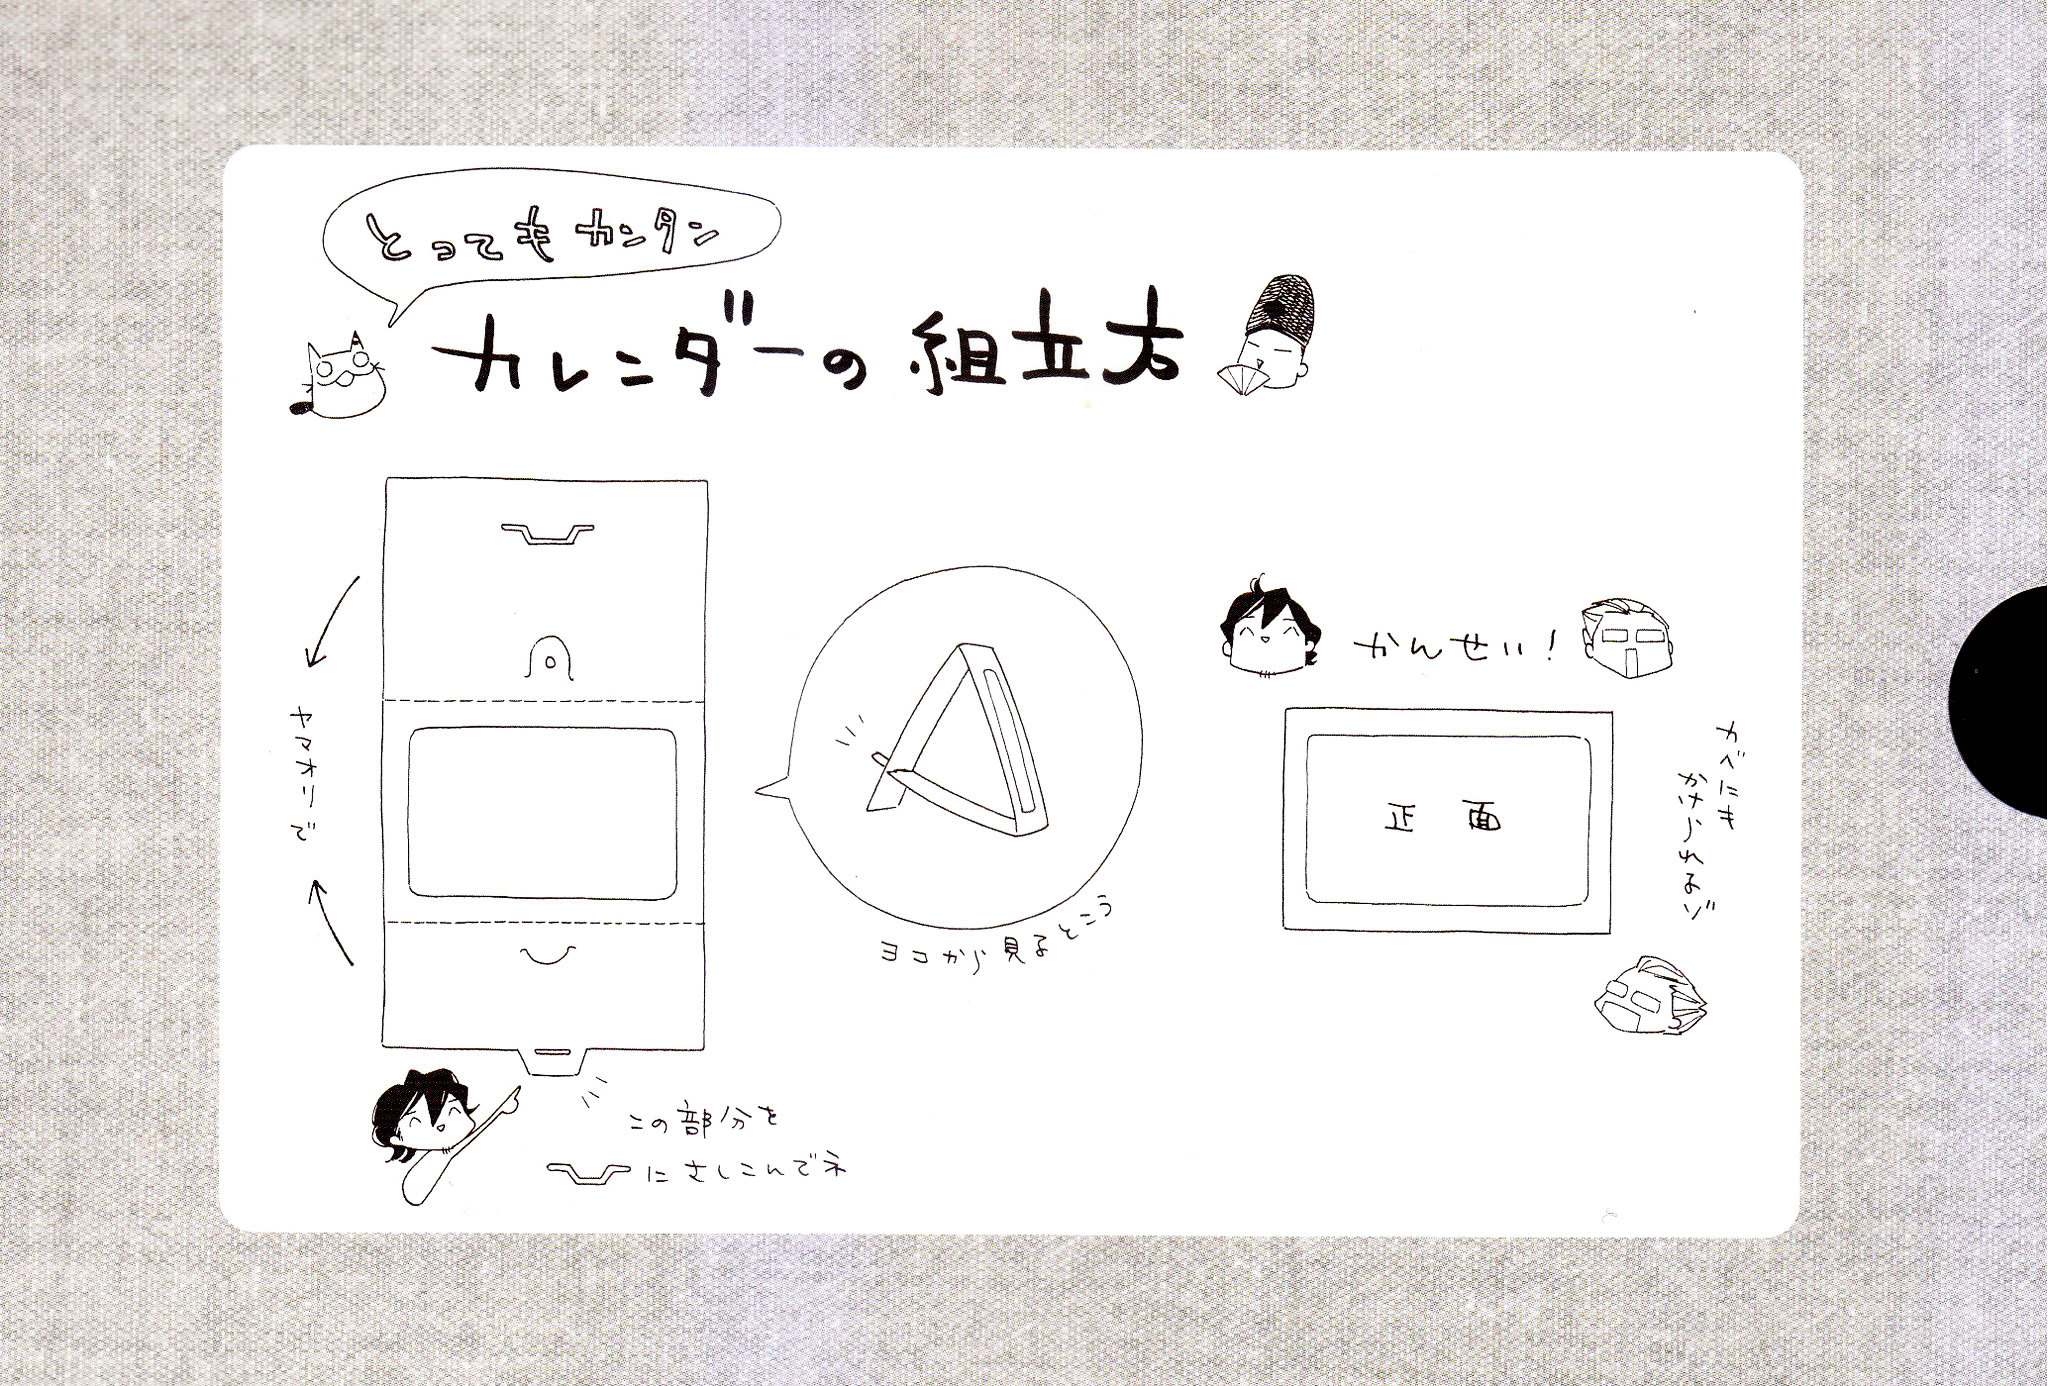 とってもカンタン
カレンダーの組立方
ヤマオリで
この部分を
にさしこんでネ
ヨコから見るとこう
かんせい!
正面
カベにも
かけられるゾ